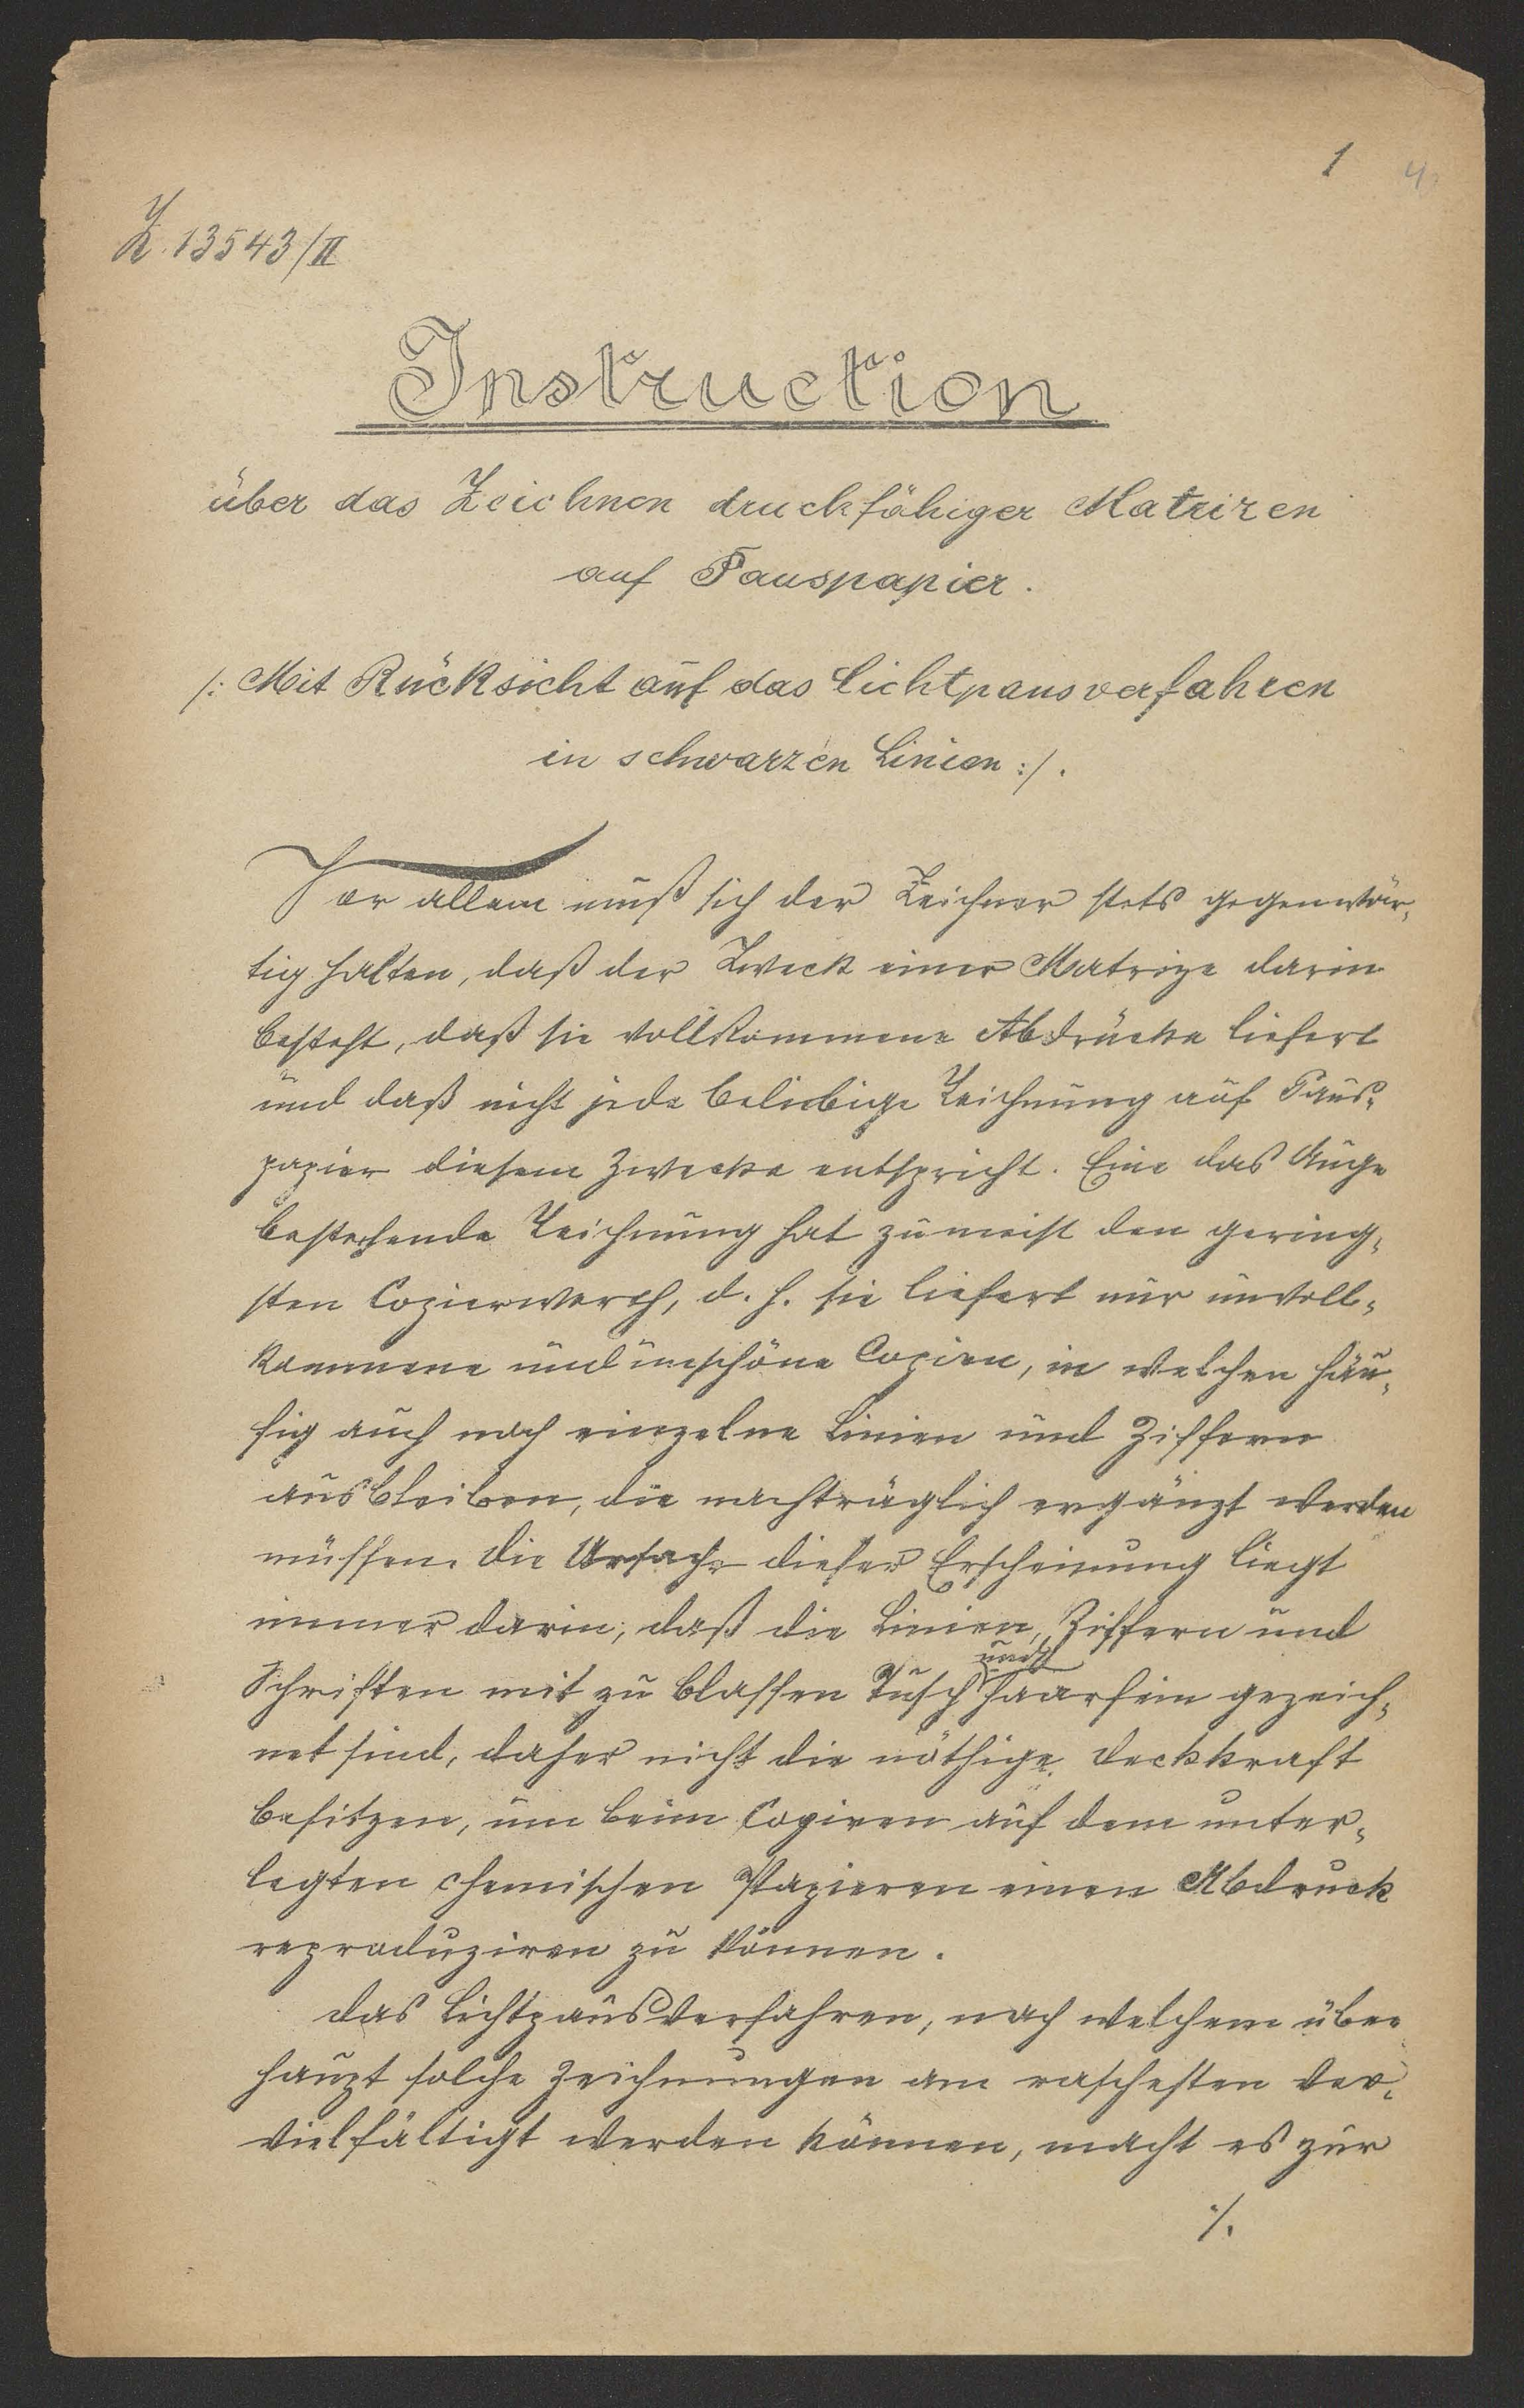 1 4.
Z. 13543/II
Instruction
über das Zeichnen druckfähiger Matrizen
auf Pauspapier.
/: Mit Rücksicht auf das Lichtpausverfahren
in schwarzen Linien :/.
Vor allem muß sich der Zeichner stets gegenwär-
tig halten, daß der Zweck einer Matrize darin
besteht, daß sie vollkommene Abdrücke liefert
und daß nicht jede beliebige Zeichnung auf Paus-
papier diesem Zwecke entspricht. Eine das Auge
bestechende Zeichnung hat zumeist den gering-
sten Copierwerth, d. h. sie liefert nur unvoll-
kommene und unschöne Copien, in welchen häu-
fig auch noch einzelne Linien und Ziffern
ausbleiben, die nachträglich ergänzt werden
müssen. Die Ursache dieser Erscheinung liegt
immer darin, daß die Linien, Ziffern und
Schriften mit zu blassen Tusch und haarfein gezeich-
net sind, daher nicht die nöthige Deckkraft
besitzen, um beim Copiren auf dem unter-
legten chemischen Papieren einen Abdruck
reproduziren zu können.
Das Lichtpausverfahren, nach welchem über-
haupt solche Zeichnungen am raschesten ver-
vielfältigt werden können, macht es zur
./.